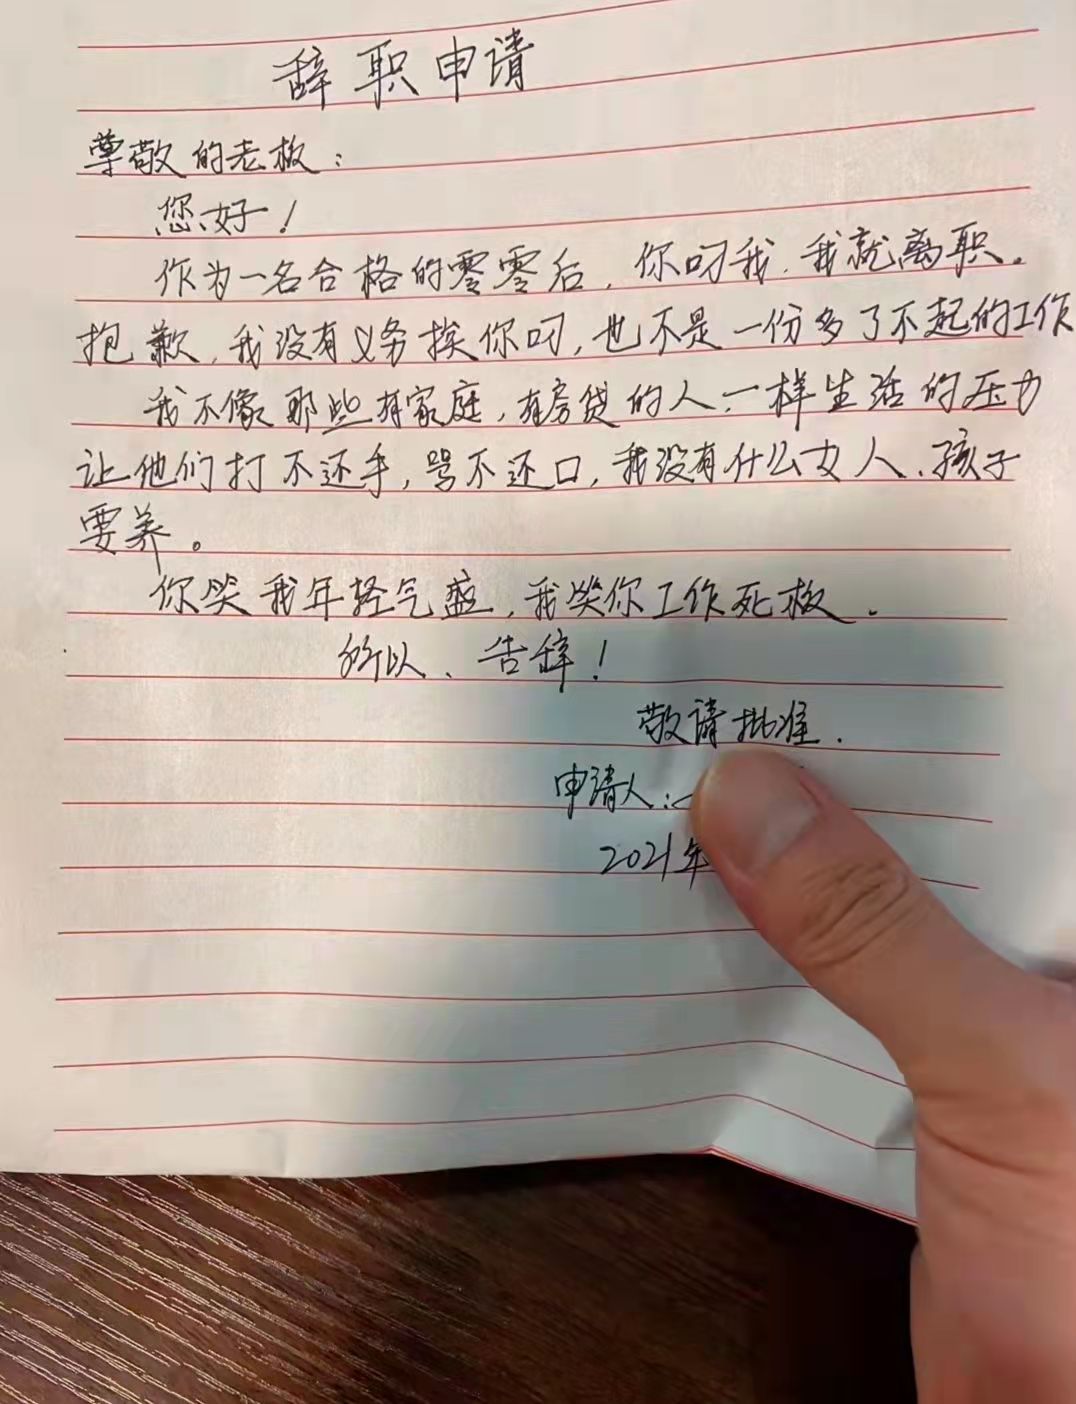 辞职申请
尊敬的老板：
您好！
作为一名合格的零零后，你叼我，我就离职。
抱歉，我没有义务挨你叼，也不是一份多了不起的工作
我不像那些有家庭，有房贷的人、一样生活的压力
让他们打不还手，骂不还口，我没有什么女人、孩子
要养。
你笑我年轻气盛，我笑你工作死板。
所以、告辞！
敬请批准.
申请人：
2021年